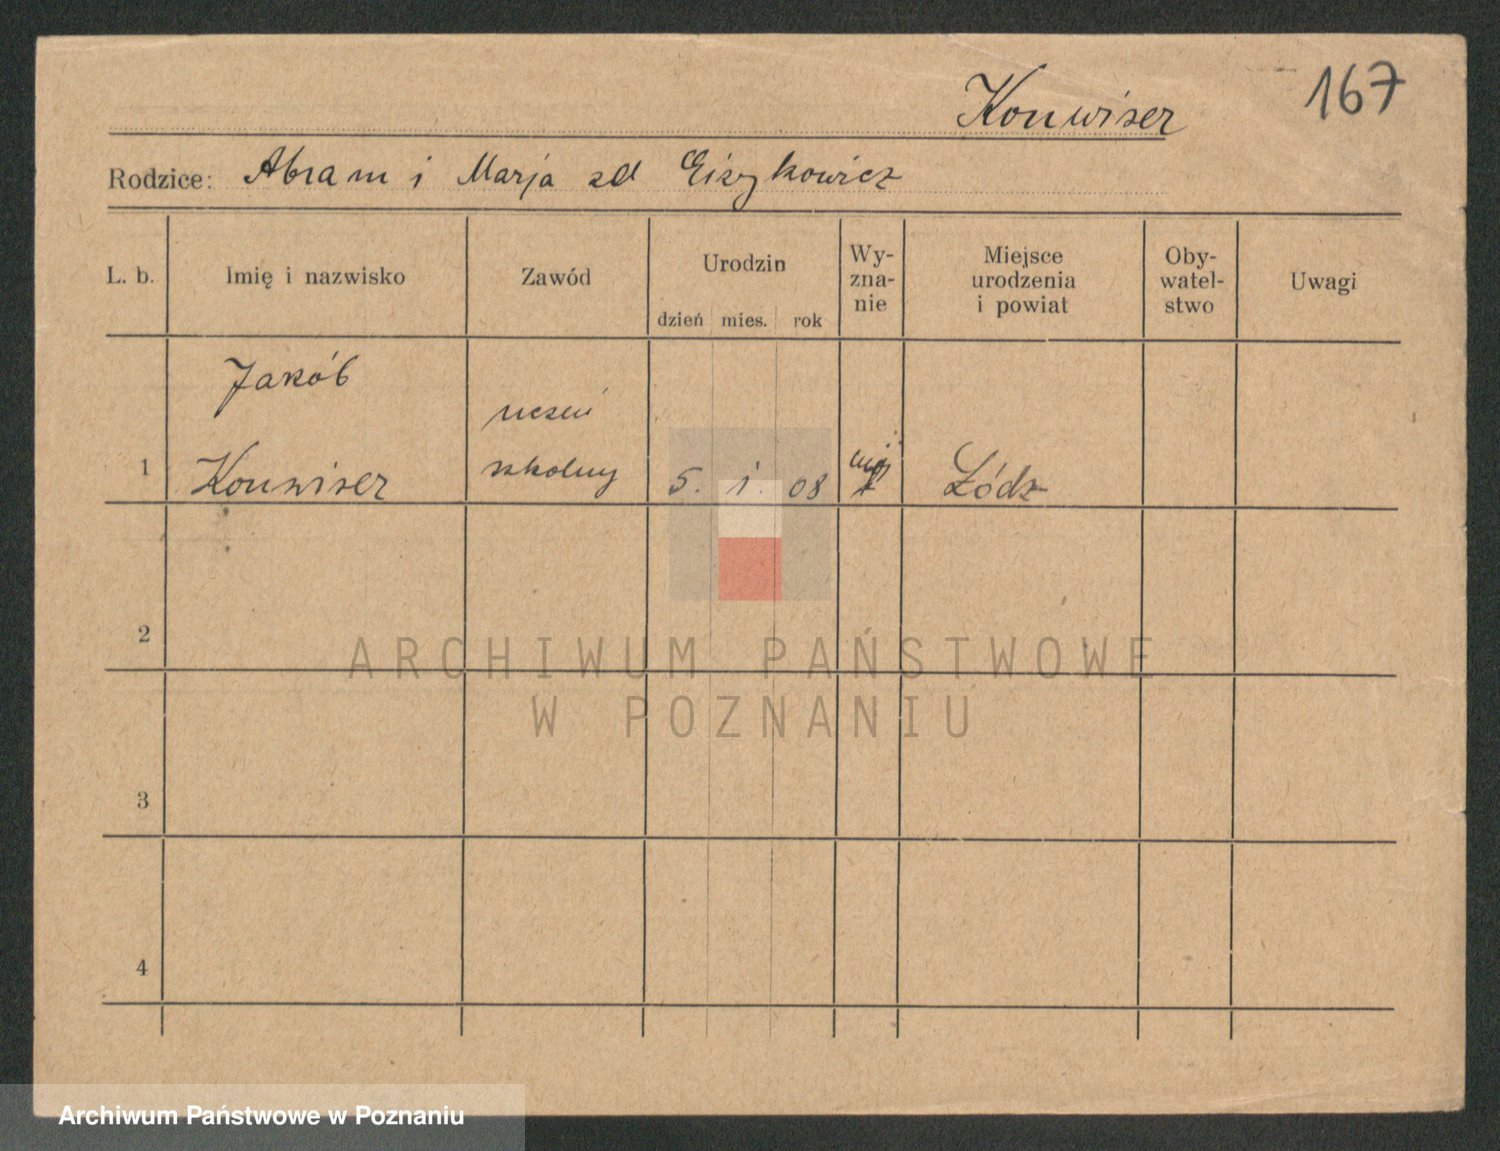 Konwiser
167
Rodzice: Abram i Marja zd Eizykowicz
L. b.
Imię i nazwisko
Zawód
Urodzin
dzień mies. rok
Wy-
zna-
nie
Miejsce
urodzenia
i powiat
Oby-
watel-
stwo
Uwagi
Jakób
Konwiser
uczeń
szkolny
1
5. 1. 08
Łódz
2
3
4
ARCHIWUM PAŃSTWOWE
W POZNANIU
Archiwum Państwowe w Poznaniu